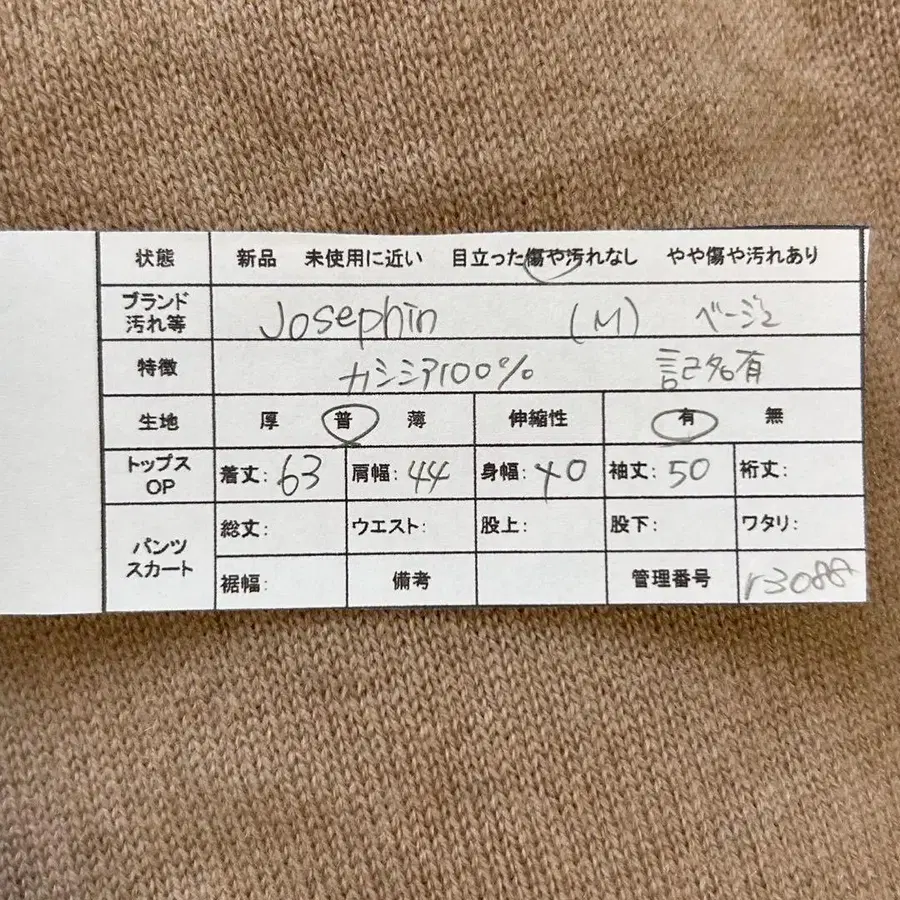 状態 新品 未使用に近い 目立った傷や汚れなし やや傷や汚れあり
ブランド
汚れ等 Josephin (M) ベージュ
特徴 カシミア100% 記名有
生地 厚 普 薄 伸縮性 有 無
トップス
OP 着丈: 63 肩幅: 44 身幅: 40 袖丈: 50 裄丈:
パンツ
スカート 総丈: ウエスト: 股上: 股下: ワタリ:
裾幅: 備考 管理番号